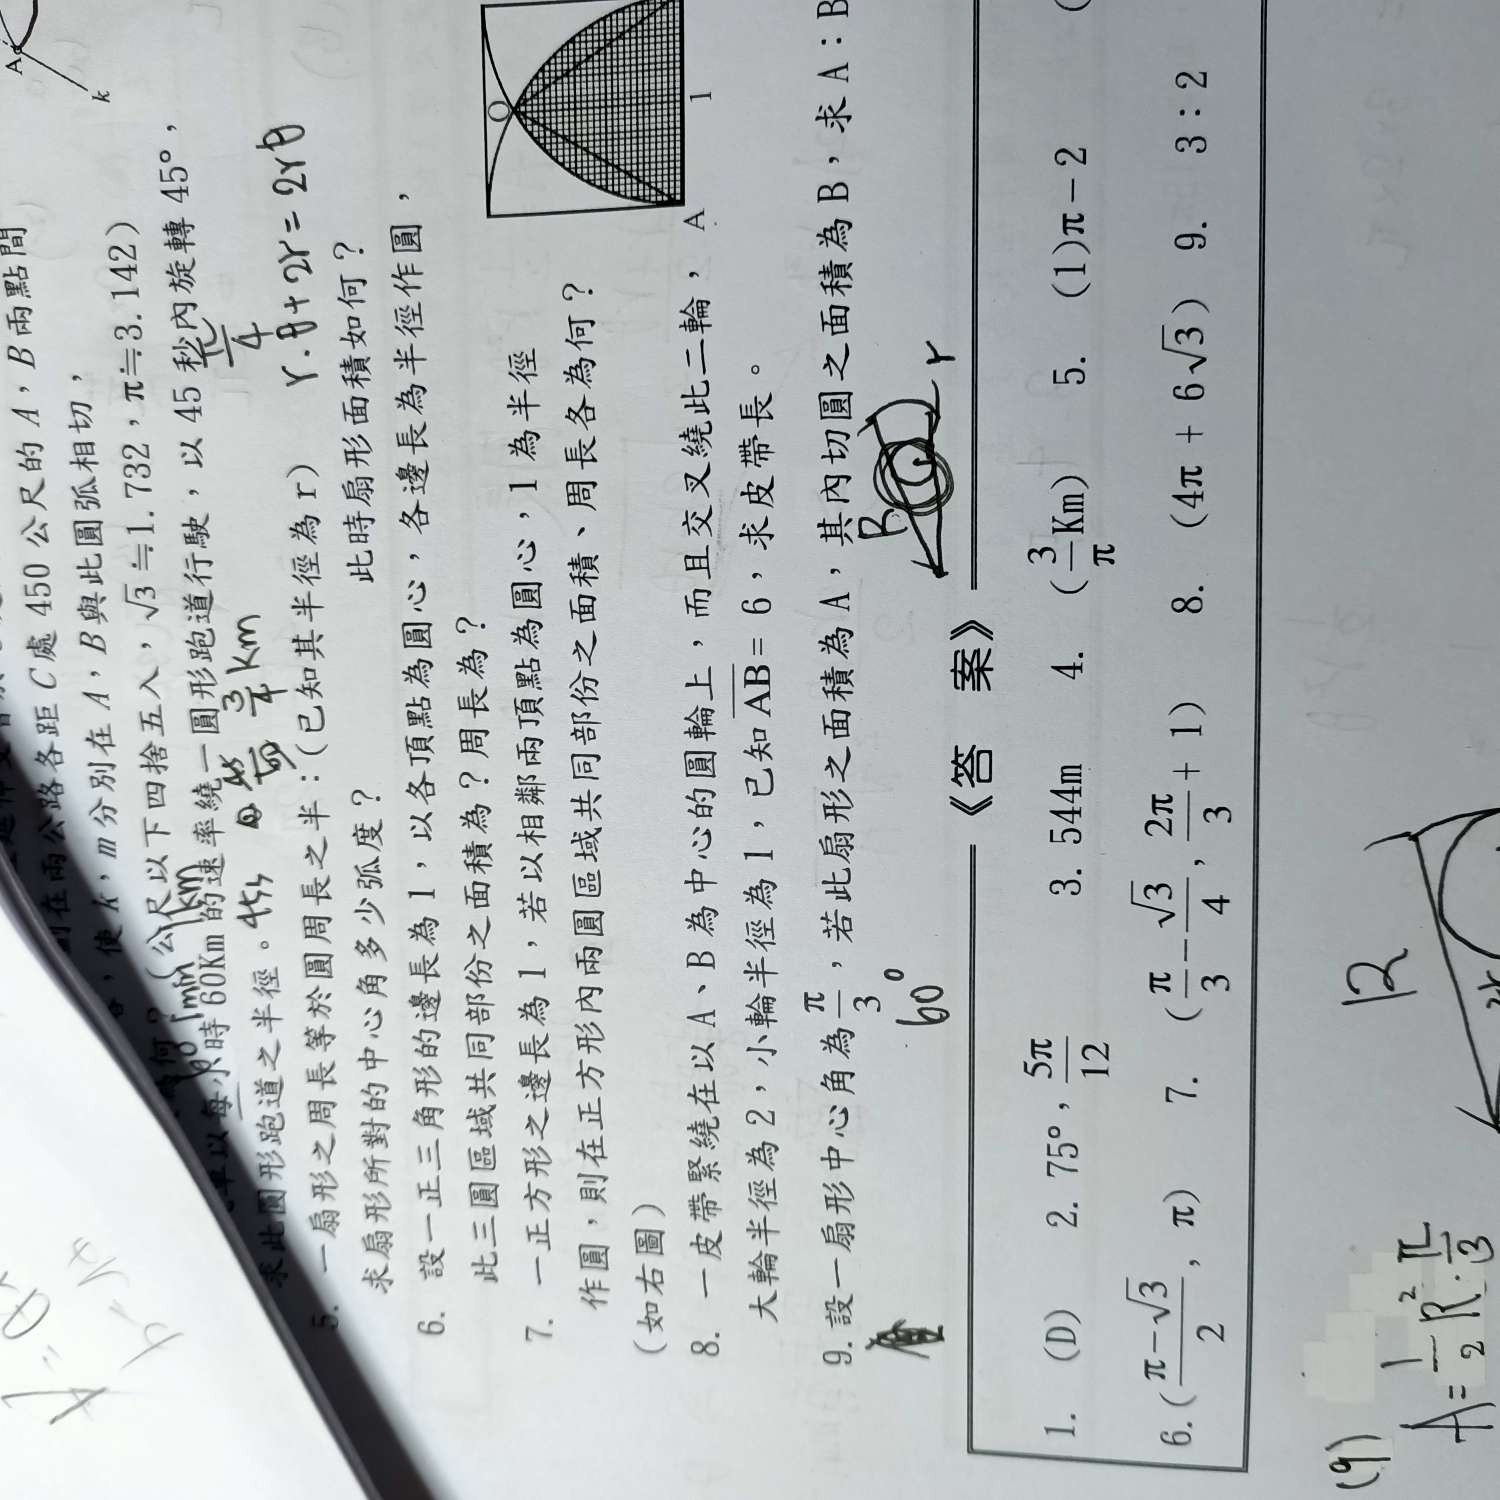 A
k
450 公尺的 A，B 兩點間
在兩公路各距 C 處
使 k，m 分別在 A，B 與此圓弧相切，
(公尺以下四捨五入，√3≒1.732，π≒3.142)
1min 1km
以每小時 60Km 的速率繞一圓形跑道行駛，以 45 秒內旋轉 45°，
π/4
求此圓形跑道之半徑。 45s 3/4 km
5. 一扇形之周長等於圓周長之半：(已知其半徑為 r) r·θ+2r=2rθ
求扇形所對的中心角多少弧度？ 此時扇形面積如何？
6. 設一正三角形的邊長為 1，以各頂點為圓心，各邊長為半徑作圓，
此三圓區域共同部份之面積為？周長為？
7. 一正方形之邊長為 1，若以相鄰兩頂點為圓心，1 為半徑
作圓，則在正方形內兩圓區域共同部份之面積、周長各為何？
(如右圖)
O
A 1
8. 一皮帶緊繞在以 A、B 為中心的圓輪上，而且交叉繞此二輪，
大輪半徑為 2，小輪半徑為 1，已知 AB = 6，求皮帶長。
9. 設一扇形中心角為 π/3，若此扇形之面積為 A，其內切圓之面積為 B，求 A：B
60°
B r
《答 案》
1. (D) 2. 75°, 5π/12 3. 544m 4. (3/π Km) 5. (1)π－2 (
6. ((π－√3)/2, π) 7. (π/3 － √3/4, 2π/3 + 1) 8. (4π + 6√3) 9. 3：2
(9)
12
A = 1/2 R² · π/3